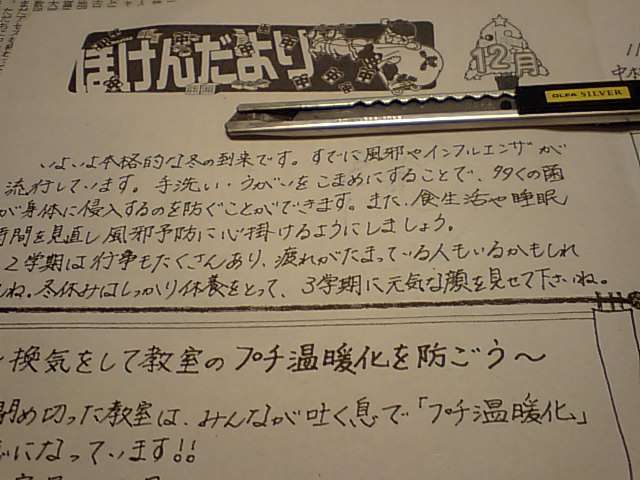 ほけんだより
12月
OLFA SILVER
いよいよ本格的な冬の到来です。すでに風邪やインフルエンザが
流行しています。手洗い・うがいをこまめにすることで、多くの菌
が身体に侵入するのを防ぐことができます。また、食生活や睡眠
時間を見直し風邪予防に心掛けるようにしましょう。
2学期は行事もたくさんあり、疲れがたまっている人もいるかもしれ
ね。冬休みはしっかり休養をとって、3学期に元気な顔を見せて下さいね。
換気をして教室のプチ温暖化を防ごう〜
閉め切った教室は、みんなが吐く息で「プチ温暖化」
になっています!!